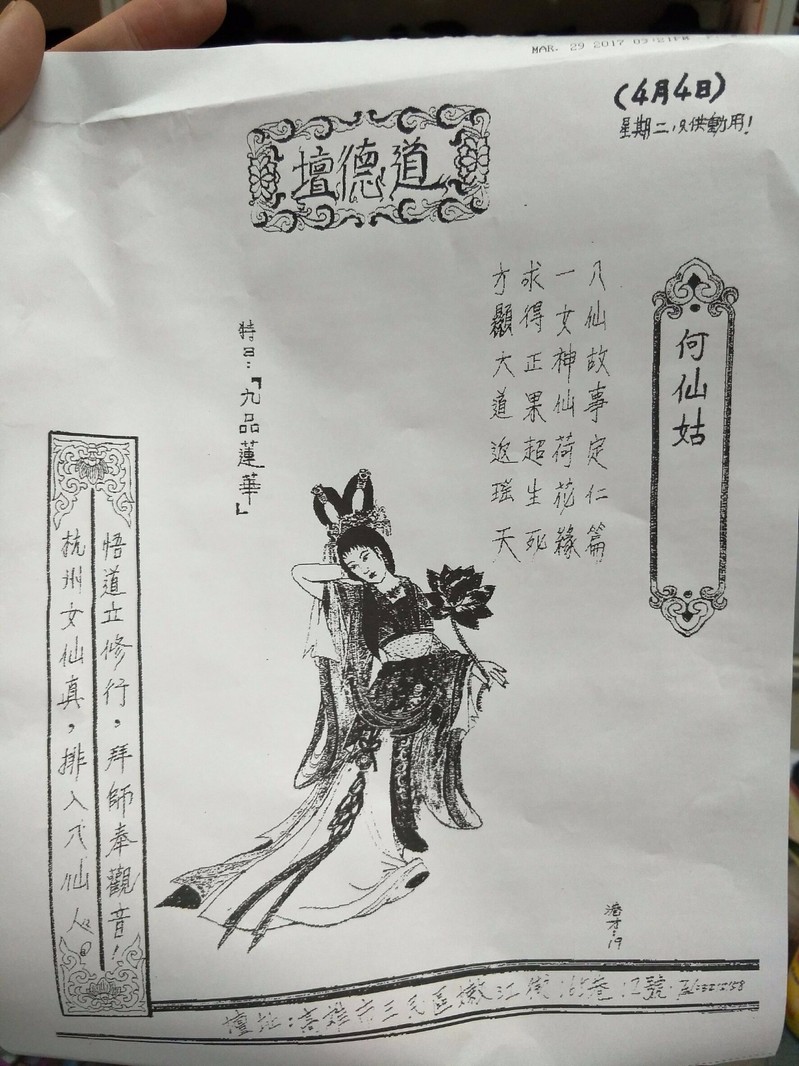 MAR. 29 2017
(4月4日)
星期二，只供動用！
道德壇
何仙姑
八仙故事定仁篇
一女神仙荷花緣
求得正果超生死
才顯大道返瑤天
特曰：『九品蓮華』
悟道立修行，拜師奉觀音！
杭州女仙真，排入八仙人。
壇址：高雄市三民區嫩江街165巷12號